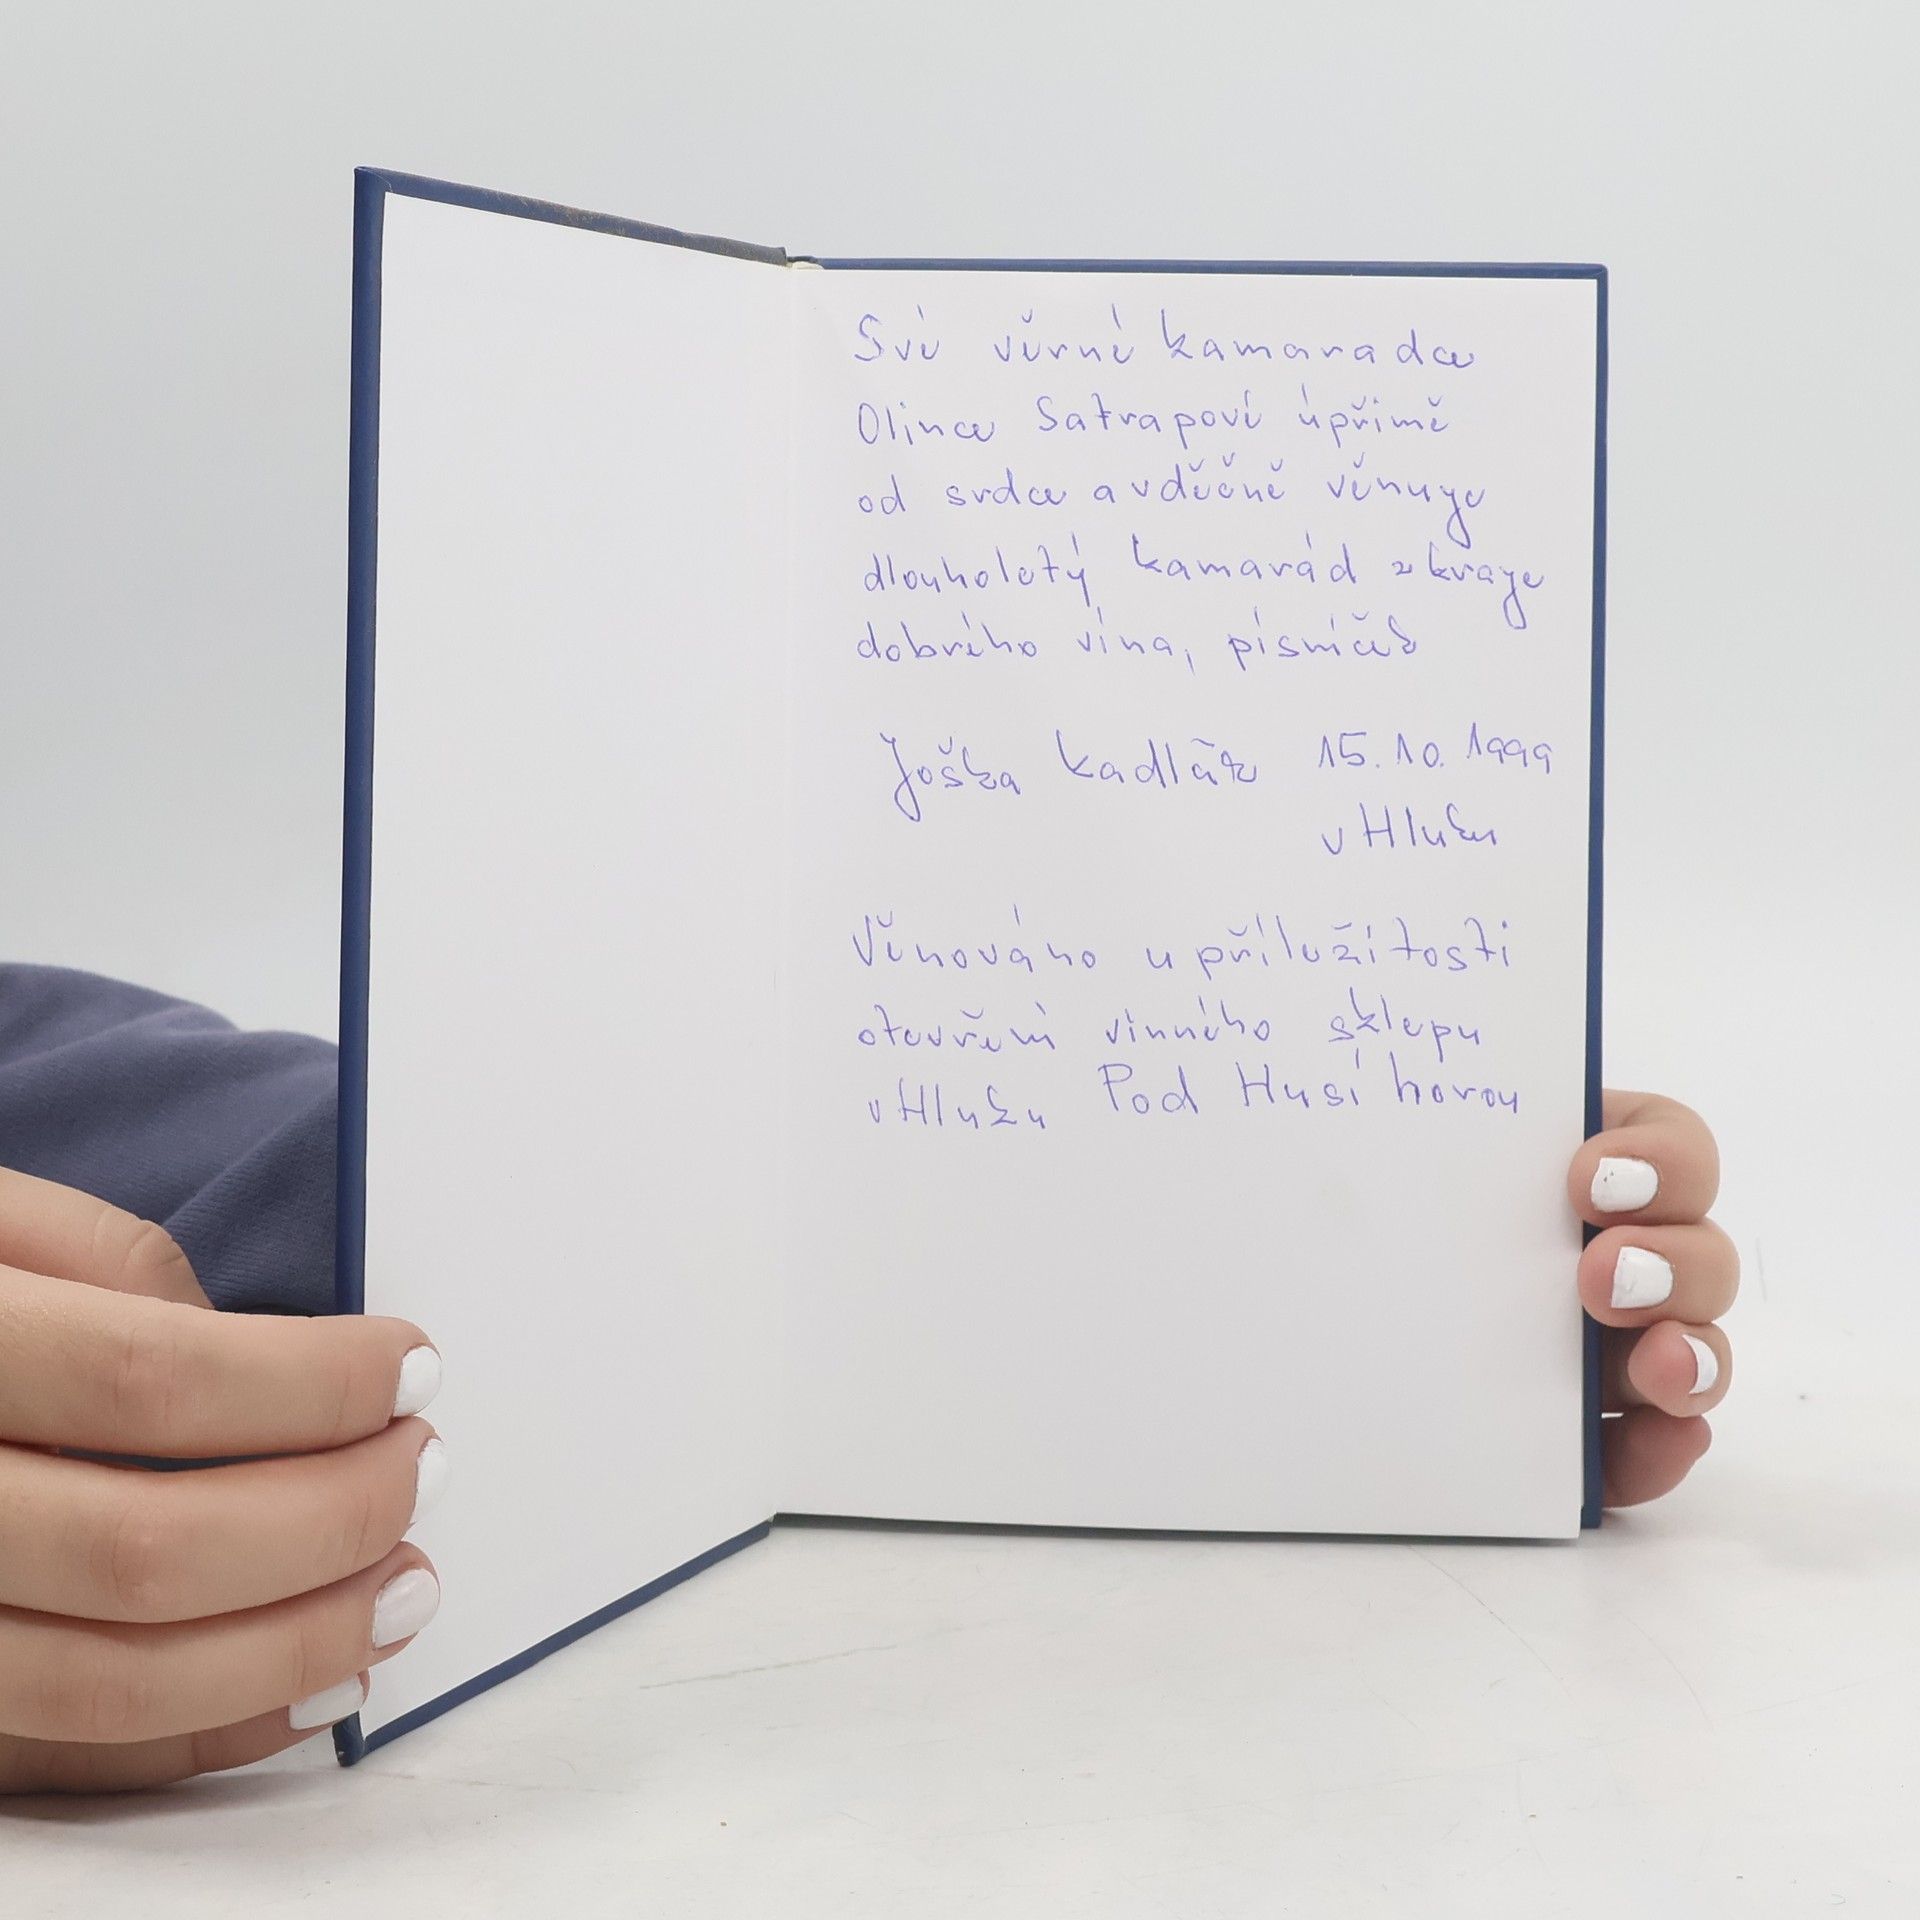 Své věrné kamaradce
Olince Satrapové úpřimě
od srdce a vděčně věnuje
dlouholetý kamarád z kraje
dobrého vína, písniček
Joška Kadlčk 15.10.1999
v Hluku
Věnováno u přílužítosti
otevření vinného sklepu
v Hluku Pod Husí horou